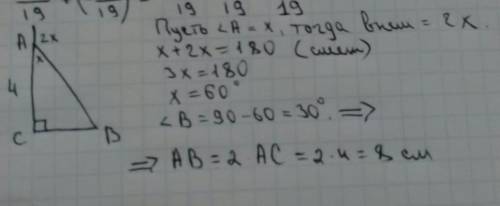 19 19 19 19
Пусть ∠A = x, тогда внеш = 2x.
x + 2x = 180 (смеж)
3x = 180
x = 60°
∠B = 90 - 60 = 30°. =>
=> AB = 2 AC = 2·4 = 8 см
A 2x
x
4
C B